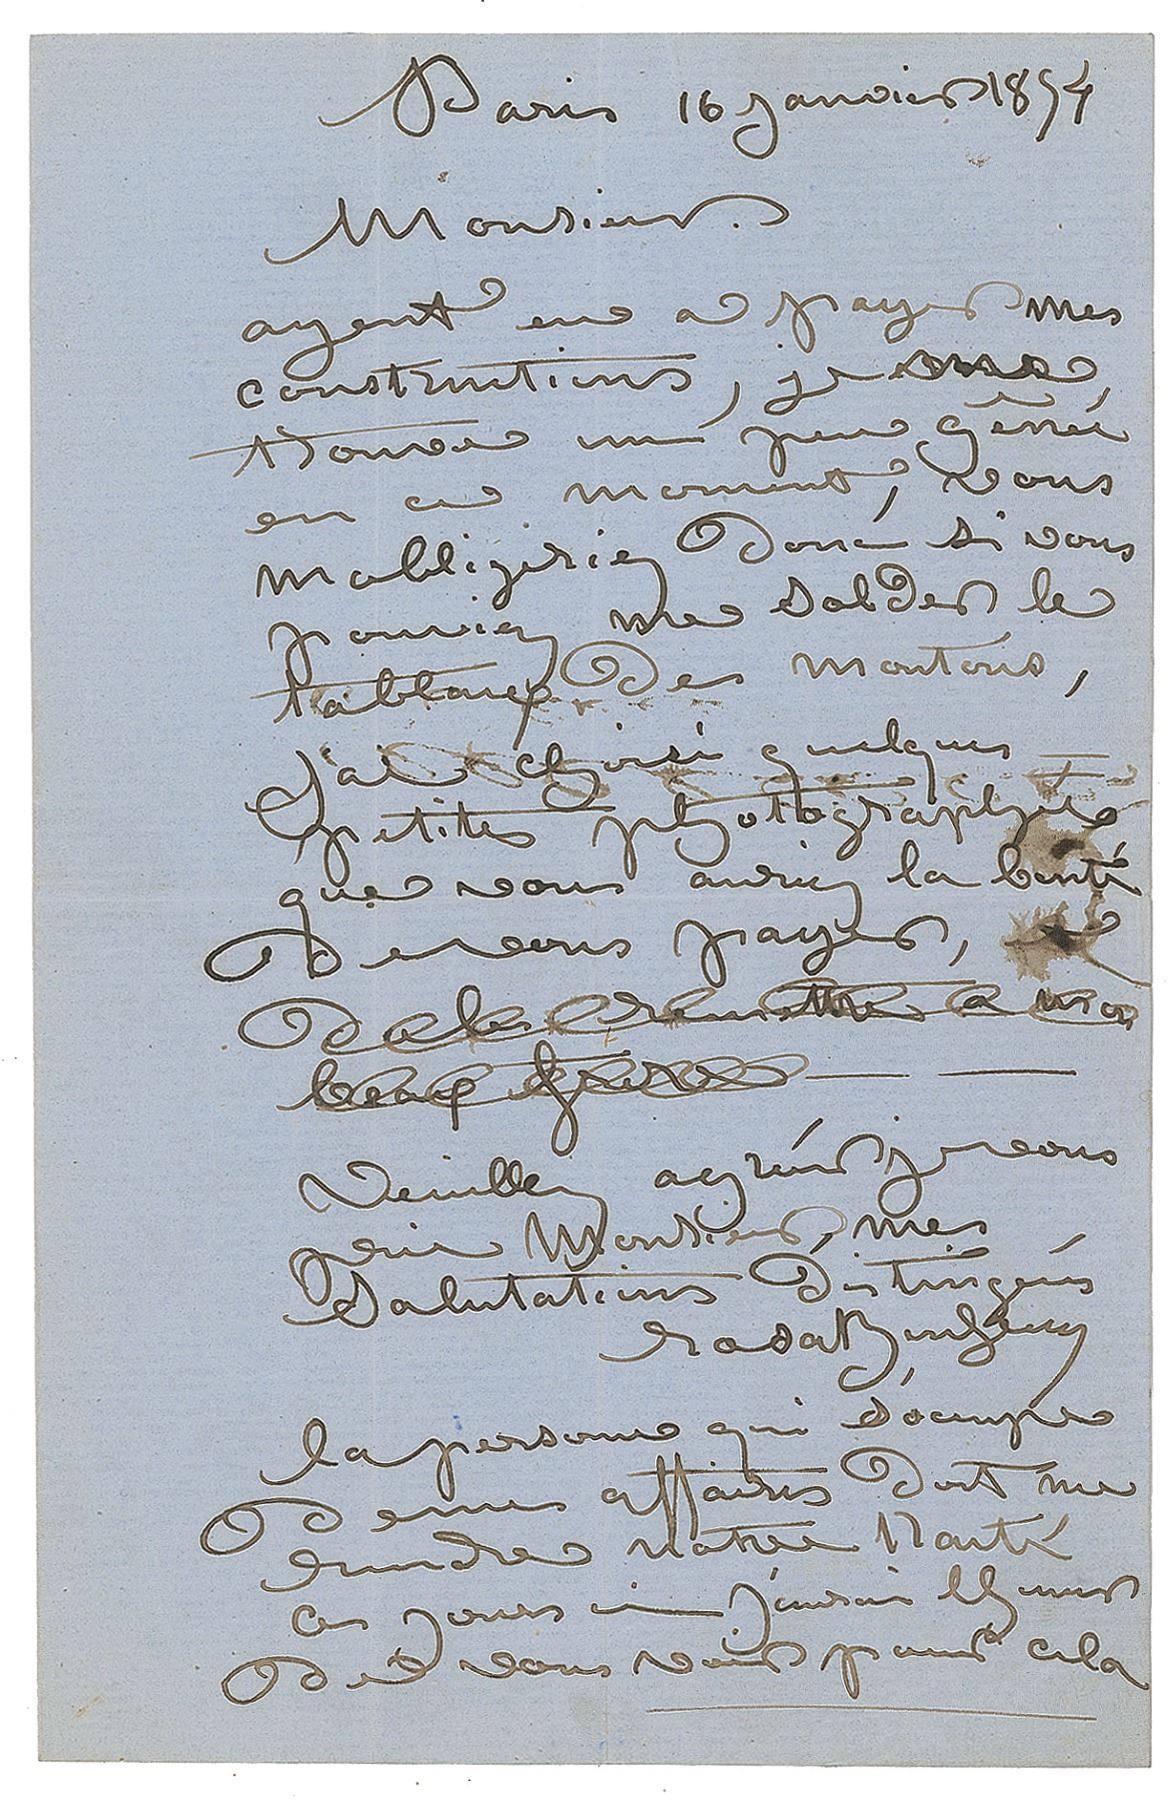 Paris 16 janvier 1854
Monsieur.
ayent eu a payer mes
constructions, je me
trouve un peu gênée
en ce moment, vous
mobligeriez donc si vous
pouviez me solder le
tableau des moutons,
J'ai choisi quelques
petites photographies
que vous auriez la bonté
de vous payer, et
de les remettre a mon
beau frere
Veuillez agréer je vous
prie Monsieur, mes
Salutations distinguées
rosa Bonheur
la personne qui s'ocupe
de mes affaires doit me
rendre notre traité
ces jours ci j'aurai lhonneur
de vous voir pour cela